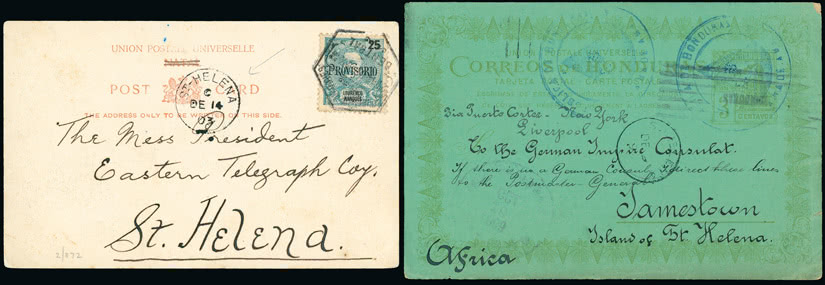 UNION POSTALE UNIVERSELLE
POST CARD
THE ADDRESS ONLY TO BE WRITTEN ON THIS SIDE.
ST. HELENA
C
DE 14
03
25
PROVISORIO
LOURENÇO
MARQUES
The Mess President
Eastern Telegraph Coy.
St. Helena.
2/072
UNION POSTALE UNIVERSELLE
CORREOS DE HONDURAS
TARJETA POSTAL
CARTE POSTALE
HONDURAS
3
CENTAVOS
Via Puerto Cortez - New York
Liverpool
To the German Empire Consulat.
If there is no a German Consul, redirect these lines
to the Postmaster-General
Jamestown
Island of St. Helena.
Africa